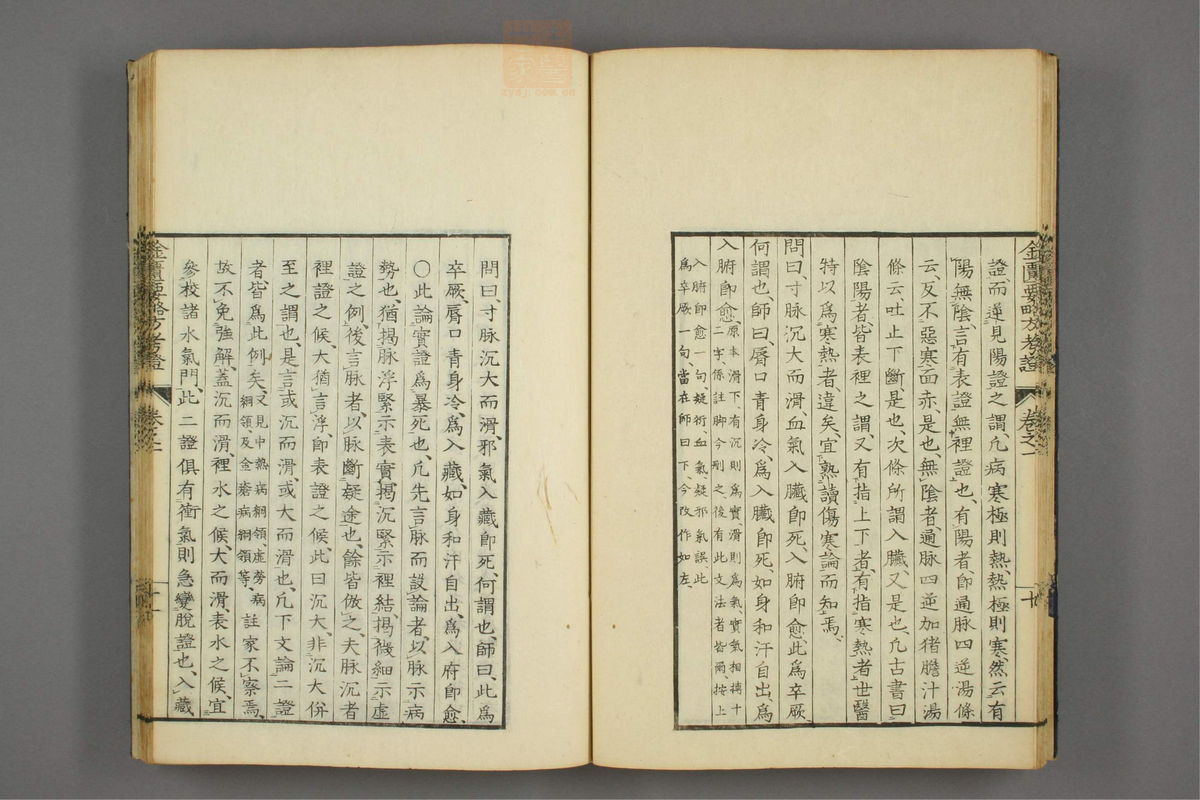 金匱要略方考證 卷之一 十
證、而逆見陽證之謂、凡病寒極則熱、熱極則寒、然云有
陽無陰、言有表證無裡證也、有陽者、即通脉四逆湯條
云、反不惡寒、面赤、是也、無陰者、通脉四逆加猪膽汁湯
條云、吐止下斷是也、次條所謂入臟又是也、凡古書曰
陰陽者、皆表裡之謂、又有指上下者、有指寒熱者、世醫
特以爲寒熱者違矣、宜熟讀傷寒論而知焉、
問曰、寸脉沉大而滑、血氣入臟即死、入腑即愈、此爲卒厥
何謂也、師曰、脣口青身冷、爲入臟即死、如身和汗自出、爲
入腑即愈、
原本滑下、有沉則爲實、滑則爲氣、實氣相摶十
二字、係註脚今刪之、後有此文法者皆爾、按上
入腑即愈一句、疑衍、血氣、疑邪氣誤、此
爲卒厥一句、當在師曰下、今改作如左、
問曰、寸脉沉大而滑、邪氣入藏即死、何謂也、師曰、此爲
卒厥、脣口青身冷、爲入藏、如身和汗自出、爲入府即愈、
○此論實證爲暴死也、凡先言脉而設論者、以脉示病
勢也、猶揭脉浮緊示表實、揭沉緊示裡結、揭微細示虛
證之例、後言脉者、以脉斷疑途也、餘皆倣之、夫脉沉者
裡證之候、大猶言浮、即表證之候、此曰沉大、非沉大併
至之謂也、是言或沉而滑、或大而滑也、凡下文論二證
者、皆爲此例矣、
又見中熱病綱領、虛勞病
綱領及金瘡病綱領等、
註家不察焉、
故不免強解、蓋沉而滑、裡水之候、大而滑、表水之候、宜
參校諸水氣門、此二證俱有衝氣則急變脫證也、入藏
金匱要略方考證 卷之一 十一
zysj.com.cn